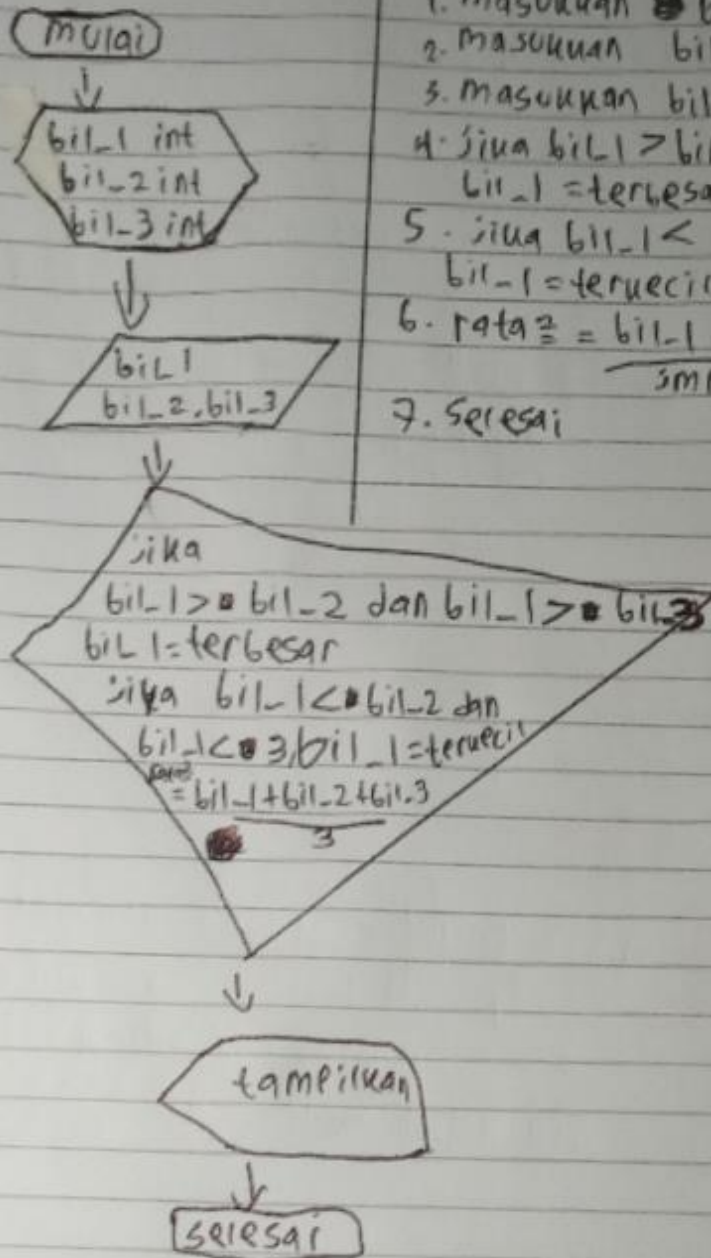 mulai
bil_1 int
bil_2 int
bil_3 int
bil 1
bil_2, bil_3
jika
bil_1 > bil_2 dan bil_1 > bil_3
bil 1 = terbesar
jika bil_1 < bil_2 dan
bil_1 < 3, bil_1 = terkecil
= bil_1 + bil_2 + bil_3
3
tampilkan
selesai
1. masukkan
2. masukkan bil
3. masukkan bil
4. jika bil_1 > bil
bil_1 = terbesa
5. jika bil_1 <
bil_1 = terkecil
6. rata2 = bil_1
jml
7. Selesai